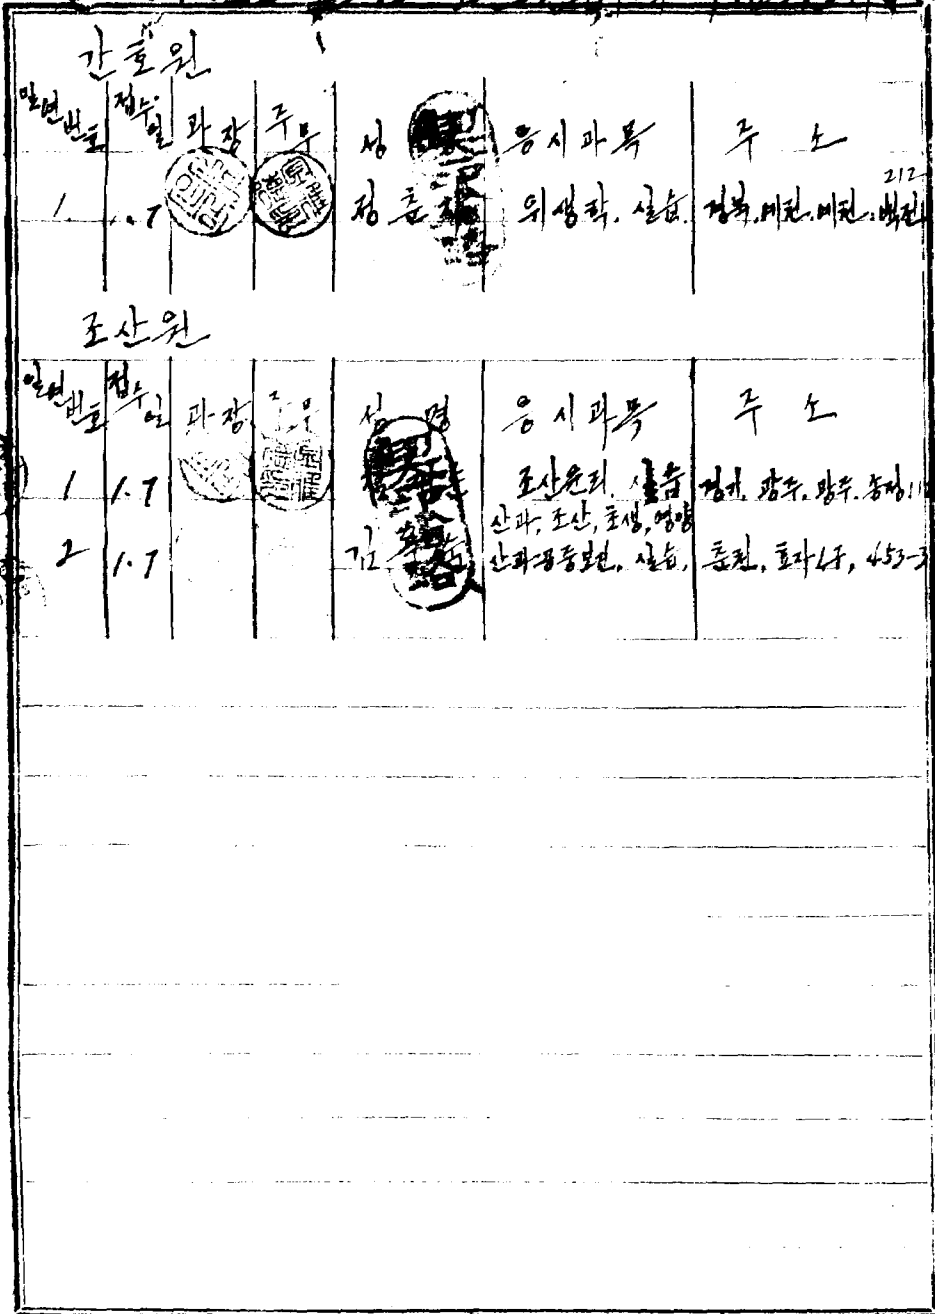 간호원
일련번호 접수일 과장 주무 성 응시과목 주소
212
1. 1.7 정춘 위생학. 실습. 경북.예천.예천.백전
조산원
일련번호 접수일 과장 주무 성명 응시과목 주소
1 1.7 조산윤리. 실습 경기. 광주. 광주. 송정
산과, 조산, 모생, 영양
2 1.7 김 산과공중보건. 실습, 춘천, 효자1구, 453-3